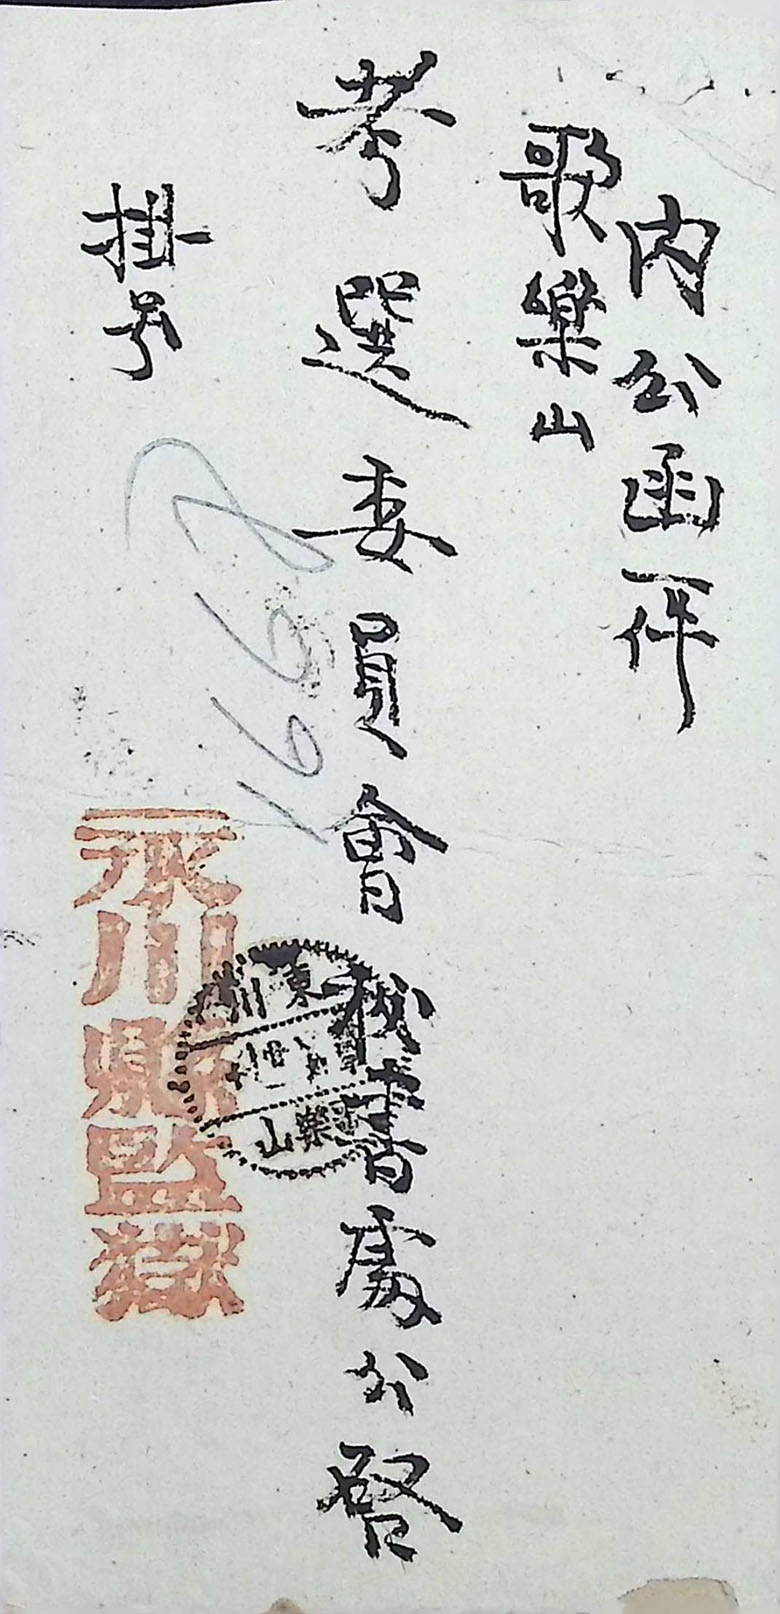 內公函一件
歌樂山
考選委員會秘書處公啓
掛号
永川縣監獄
東川
歌樂山